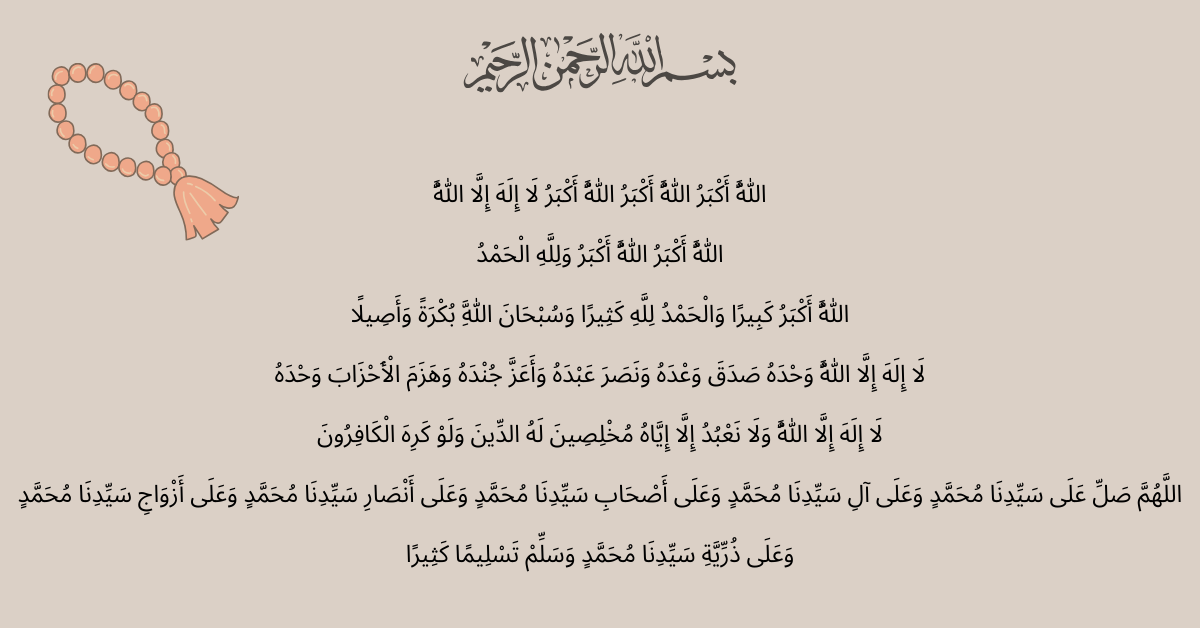 بسم الله الرحمن الرحيم
اللهُ أَكْبَرُ اللهُ أَكْبَرُ اللهُ أَكْبَرُ لَا إِلَهَ إِلَّا اللهُ
اللهُ أَكْبَرُ اللهُ أَكْبَرُ وَلِلَّهِ الْحَمْدُ
اللهُ أَكْبَرُ كَبِيرًا وَالْحَمْدُ لِلَّهِ كَثِيرًا وَسُبْحَانَ اللهِ بُكْرَةً وَأَصِيلًا
لَا إِلَهَ إِلَّا اللهُ وَحْدَهُ صَدَقَ وَعْدَهُ وَنَصَرَ عَبْدَهُ وَأَعَزَّ جُنْدَهُ وَهَزَمَ الْأَحْزَابَ وَحْدَهُ
لَا إِلَهَ إِلَّا اللهُ وَلَا نَعْبُدُ إِلَّا إِيَّاهُ مُخْلِصِينَ لَهُ الدِّينَ وَلَوْ كَرِهَ الْكَافِرُونَ
اللَّهُمَّ صَلِّ عَلَى سَيِّدِنَا مُحَمَّدٍ وَعَلَى آلِ سَيِّدِنَا مُحَمَّدٍ وَعَلَى أَصْحَابِ سَيِّدِنَا مُحَمَّدٍ وَعَلَى أَنْصَارِ سَيِّدِنَا مُحَمَّدٍ وَعَلَى أَزْوَاجِ سَيِّدِنَا مُحَمَّدٍ
وَعَلَى ذُرِّيَّةِ سَيِّدِنَا مُحَمَّدٍ وَسَلِّمْ تَسْلِيمًا كَثِيرًا